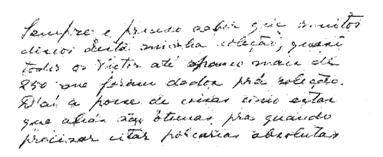 Sempre é preciso saber que muitos
discos desta minha coleção, quase
todos os até pouco mais de
250 me foram dados prá coleção.
Daí a posse de coisas como estas
que aliás são ótimas, pra quando
precisar citar porcarias absolutas